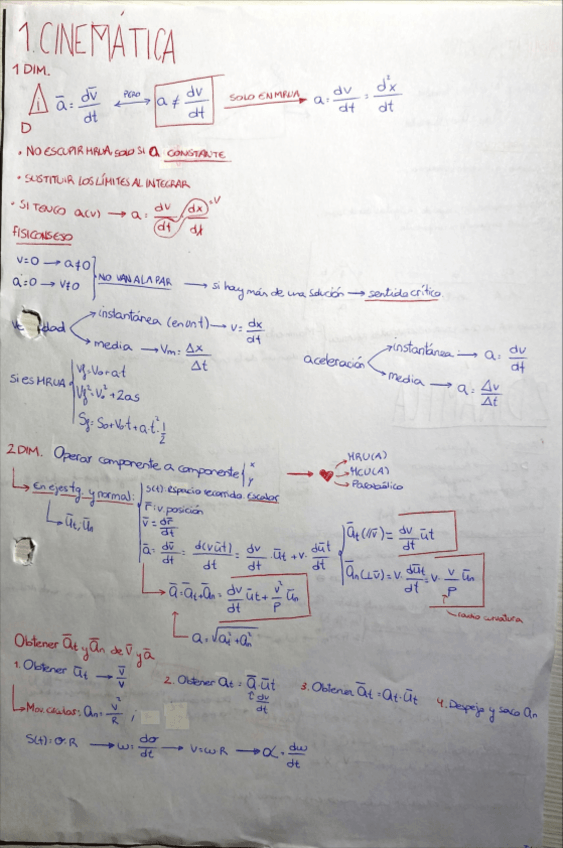 1. CINEMÁTICA
1 DIM.
ā = dv̄/dt ⟷ PERO a ≠ dv/dt SOLO EN MRUA → a = dv/dt = d²x/dt
D
• NO ESCUPIR MRUA, SOLO SI a CONSTANTE
• SUSTITUIR LOS LÍMITES AL INTEGRAR
• SI TENGO a(v) → a = dv/dt · dx/dx = v
FISICONSESO
v=0 → a≠0
a=0 → v≠0
NO VAN A LA PAR → si hay más de una solución → sentido crítico.
dad
instantánea (en ont) → v = dx/dt
media → Vm = Δx/Δt
aceleración
instantánea → a = dv/dt
media → a = Δv/Δt
Si ES MRUA
Vf = Vo + at
Vf² = Vo² + 2as
Sf = So + Vot + a·t²·1/2
2 DIM. Operar componente a componente { x y → ♥
MRU(A)
MCU(A)
Parabólico
En ejes tg. y normal:
ūt, ūn
S(t): espacio recorrido. Escalar
r̄: v. posición
v̄ = dr̄/dt
ā = dv̄/dt = d(vūt)/dt = dv/dt · ūt + v · dūt/dt
āt (∥v̄) = dv/dt ūt
ān (⊥v̄) = v · dūt/dt = v · v/ρ ūn
radio curvatura
ā = āt + ān = dv/dt ūt + v²/ρ ūn
a = √(at² + an²)
Obtener āt y ān de v̄ y ā
1. Obtener ūt → v̄/v
2. Obtener at = ā · ūt
dv/dt
3. Obtener āt = at · ūt
4. Despejo y saco an
Mov. circular: an = v²/R ;
S(t) = σ·R → ω = dσ/dt → v = ωR → α = dω/dt